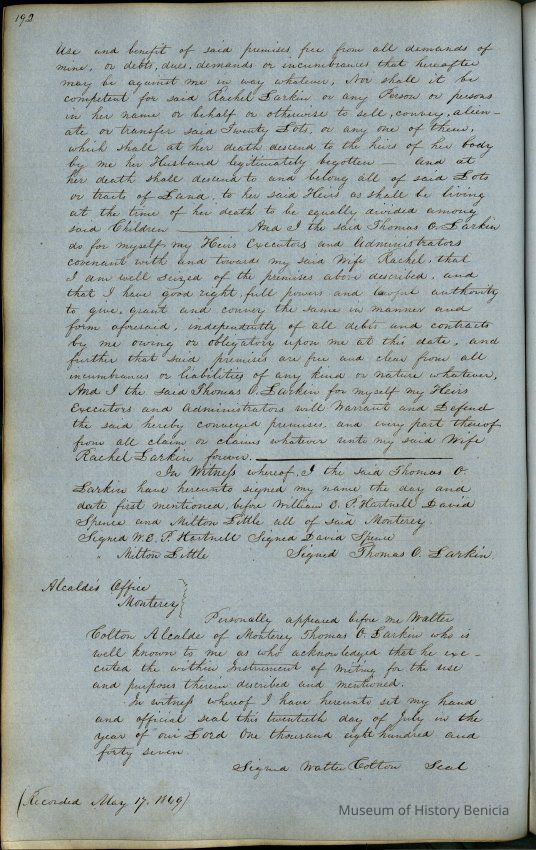 192
Use and benefit of said premises free from all demands of
mine, or debts, dues, demands or incumbrances that hereafter
may be against me in way whatever, Nor shall it be
competent for said Rachel Larkin or any Person or persons
in her name or behalf or otherwise to sell, convey, alien-
ate or transfer said Twenty Lots, or any one of them,
which shall at her death descend to the heirs of her body
by me her Husband legitimately begotten — and at
her death shall descend to and belong all of said Lots
or tracts of Land, to her said Heirs as shall be living
at the time of her death to be equally divided among
said Children ——— And I the said Thomas O. Larkin
do for myself, my Heirs Executors and Administrators
covenant with and towards my said Wife Rachel, that
I am well seized of the premises above described, and
that I have good right, full powers and lawful authority
to give, grant and convey the same in manner and
form aforesaid, independently of all debts and contracts
by me owing or obligatory upon me at this date, and
further that said premises are free and clear from all
incumbrances or liabilities of any kind or nature whatever,
And I the said Thomas O. Larkin for myself my Heirs
Executors and Administrators will Warrant and Defend
the said hereby conveyed premises, and every part thereof
from all claim or claims whatever unto my said Wife
Rachel Larkin forever. ———
In Witness whereof, I the said Thomas O.
Larkin have hereunto signed my name the day and
date first mentioned, before William E. P. Hartnell David
Spence and Milton Little all of said Monterey.
Signed W. E. P. Hartnell Signed David Spence
" Milton Little Signed Thomas O. Larkin
Alcaldes Office
Monterey
Personally appeared before me Walter
Colton Alcalde of Monterey Thomas O. Larkin who is
well known to me as who acknowledged that he exe-
cuted the within Instrument of writing for the use
and purposes therein described and mentioned.
In witness whereof I have hereunto set my hand
and official seal this twentieth day of July in the
year of our Lord One thousand eight hundred and
forty seven.
Signed Walter Colton Seal
(Recorded May 17, 1849)
Museum of History Benicia